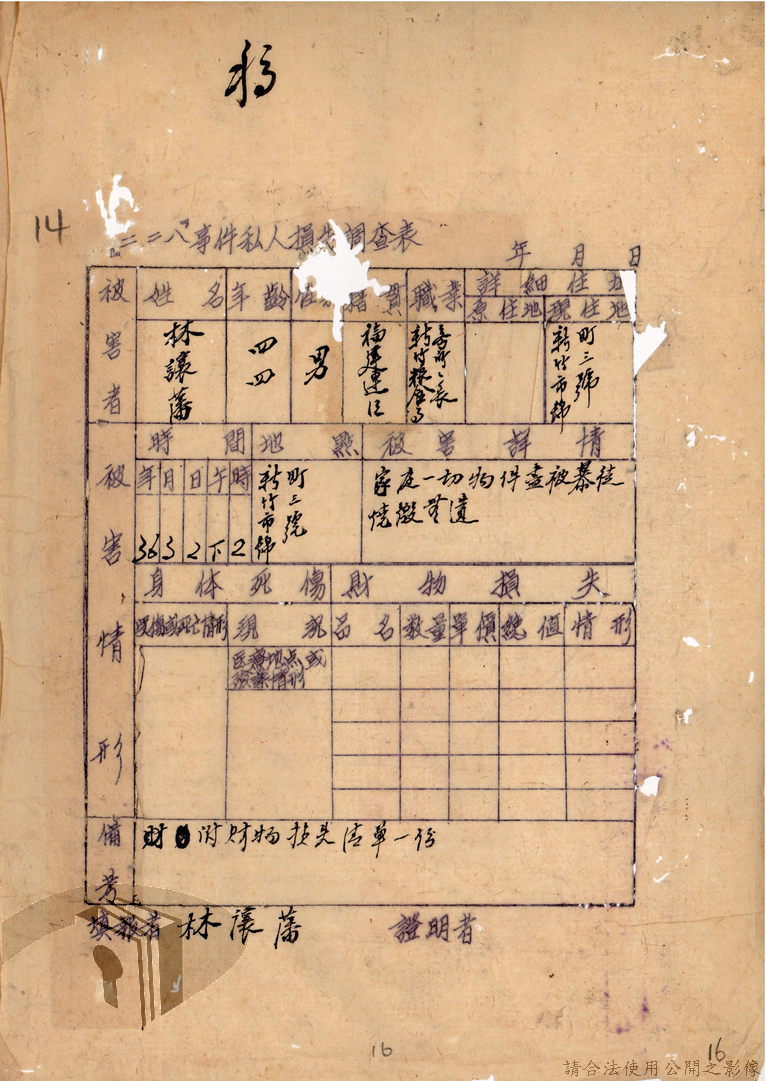 稿
14
「二二八」事件私人損失調查表
年 月 日
被害者
姓名 年齡 性別 籍貫 職業 詳細住址
原住地 現住地
林讓藩 四四 男 福建連江 新竹 長 新竹市錦町三號
被害情形
時間 地點 被害詳情
年 月 日 午 時
36 3 2 下 2 新竹市錦町三號
家庭一切物件盡被暴徒
燒燬無遺
身体死傷 財物損失
受傷或死亡情形 現況 品名 數量 單價 總值 情形
医療地点或
殮葬情形
備考
附財物損失清單一份
填報者 林讓藩 證明者
16
16
請合法使用公開之影像